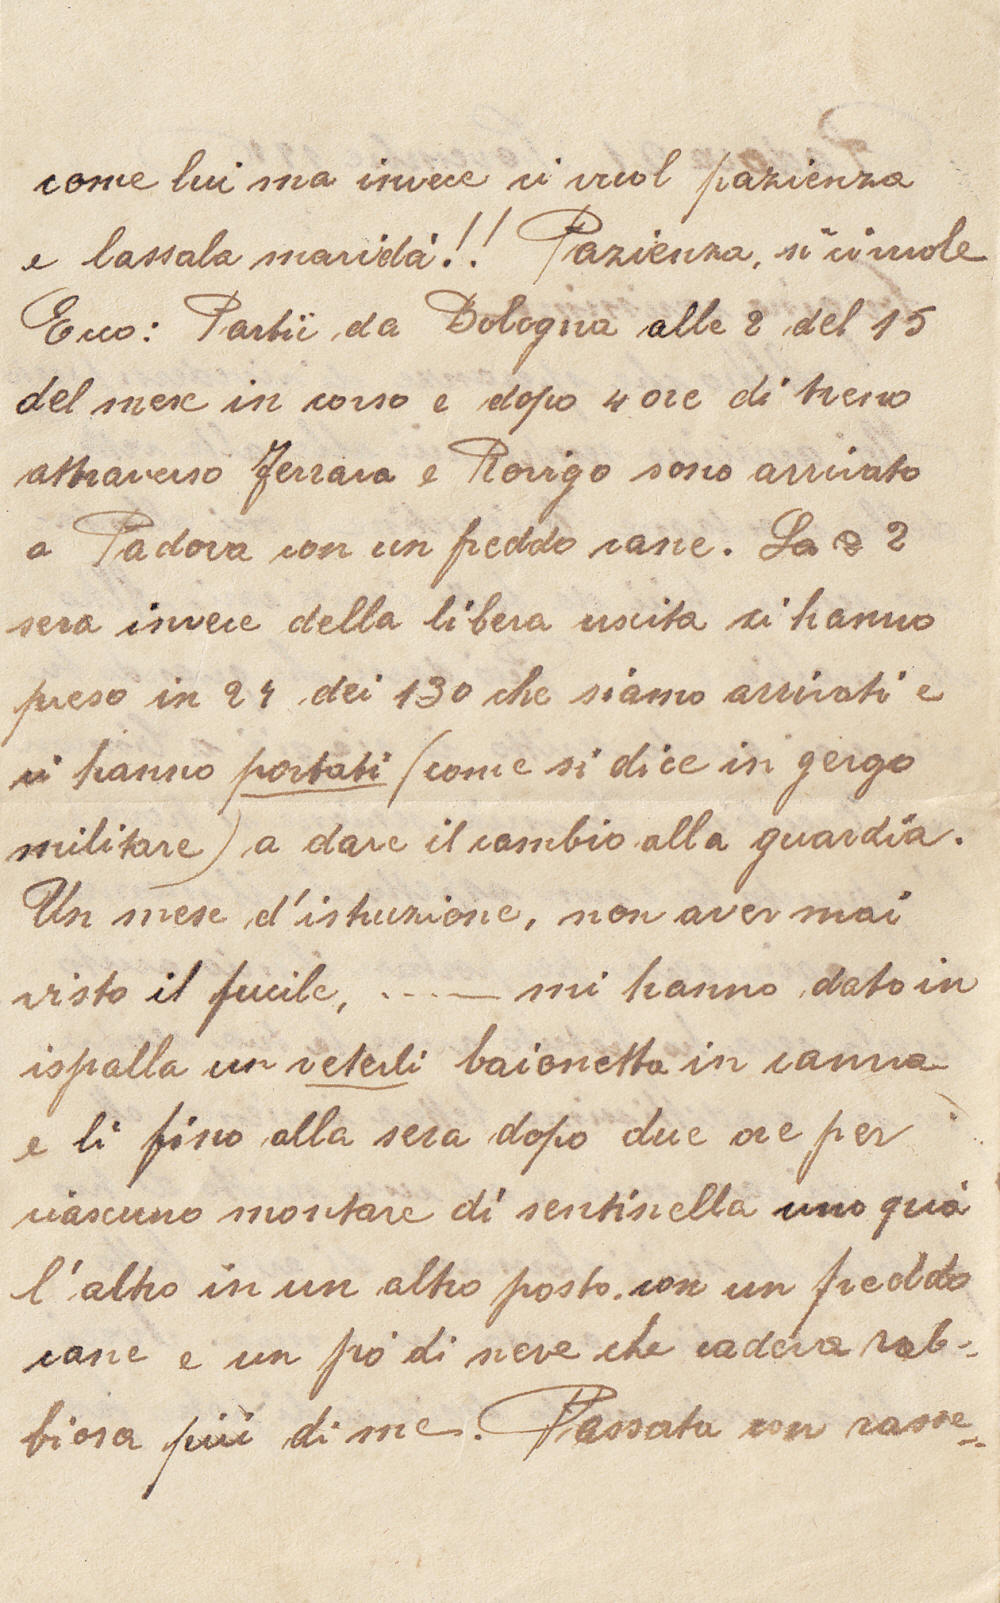 come lui ma invece ci vuol pazienza
e lassala maridà!! Pazienza, sì ci vuole
Ecco: Partii da Bologna alle 2 del 15
del mese in corso e dopo 4 ore di treno
attraverso Ferrara e Rovigo sono arrivato
a Padova con un freddo cane. La 2
sera invece della libera uscita ci hanno
preso in 24 dei 130 che siamo arrivati e
ci hanno portati (come si dice in gergo
militare) a dare il cambio alla guardia.
Un mese d'istruzione, non aver mai
visto il fucile, ....— mi hanno dato in
ispalla un veterli baionetta in canna
e li fino alla sera dopo due ore per
ciascuno montare di sentinella uno quà
l'altro in un altro posto. con un freddo
cane e un pò di neve che cadeva rab-
biosa più di me. Passata con rasse-